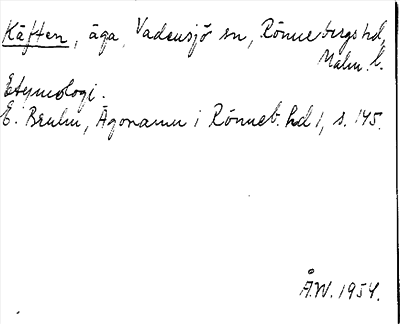 Käften, äga, Vadensjö sn, Rönnebergs hd,
Malm. l.
Etymologi.
E. Brulin, Ägonamn i Rönneb. hd 1, s. 145.
Å.W. 1954.